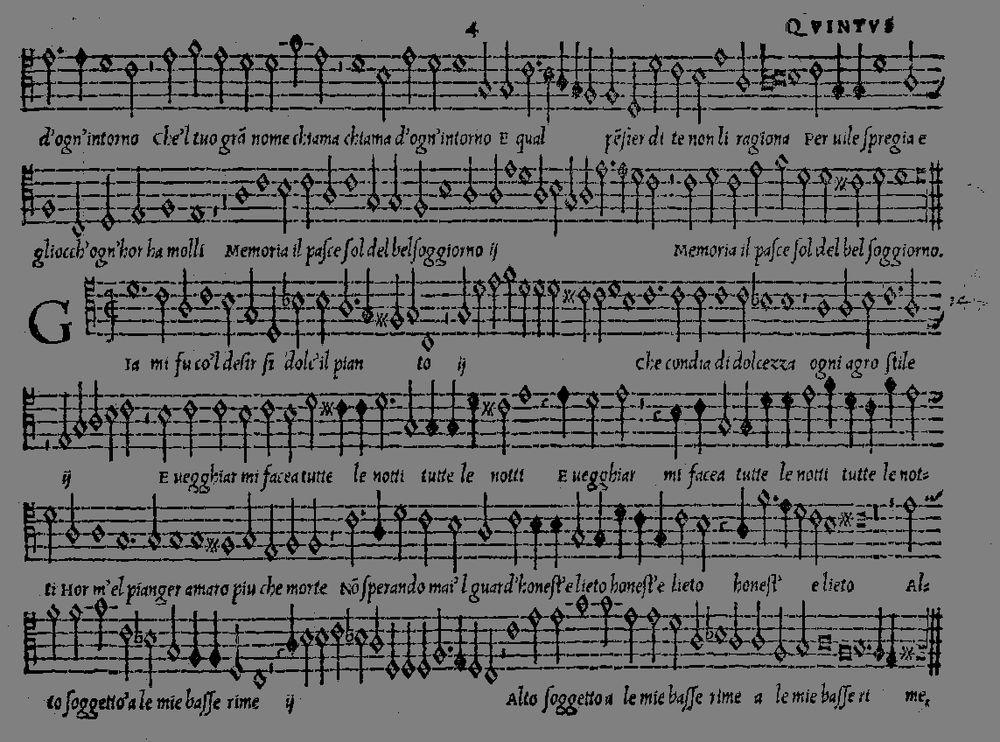 4 QVINTVS
d'ogn'intorno Che'l tuo grã nome chiama chiama d'ogn'intorno E qual pẽsier di te non li ragiona Per uile spregia e
gliocch'ogn'hor ha molli Memoria il pasce sol del bel soggiorno ij Memoria il pasce sol del bel soggiorno.
G Ia mi fu co'l desir si dolc'il pian to ij Che condia di dolcezza ogni agro stile
ij E uegghiar mi facea tutte le notti tutte le notti E uegghiar mi facea tutte le notti tutte le not=
ti Hor m'el pianger amaro piu che morte Nõ sperando mai'l guard'honest'e lieto honest'e lieto honest' e lieto Al=
to soggetto'a le mie basse rime ij Alto soggetto a le mie basse rime a le mie basse ri me,